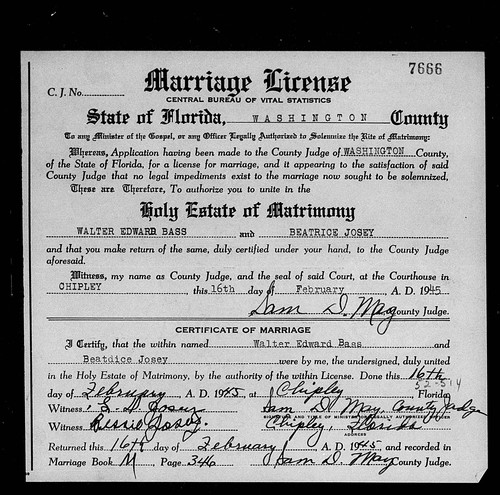 7666
Marriage License
C. J. No.
CENTRAL BUREAU OF VITAL STATISTICS
State of Florida, WASHINGTON County
To any Minister of the Gospel, or any Officer Legally Authorized to Solemnize the Rite of Matrimony:
Whereas, Application having been made to the County Judge of WASHINGTON County,
of the State of Florida, for a license for marriage, and it appearing to the satisfaction of said
County Judge that no legal impediments exist to the marriage now sought to be solemnized,
These are Therefore, To authorize you to unite in the
Holy Estate of Matrimony
WALTER EDWARD BASS and BEATRICE JOSEY
and that you make return of the same, duly certified under your hand, to the County Judge
aforesaid.
Witness, my name as County Judge, and the seal of said Court, at the Courthouse in
CHIPLEY, this 16th day of February A. D. 1945
Sam D. May County Judge.
CERTIFICATE OF MARRIAGE
I Certify, that the within named Walter Edward Bass and
Beatdice Josey were by me, the undersigned, duly united
in the Holy Estate of Matrimony, by the authority of the within License. Done this 16th
52-514
day of February A. D. 1945, at Chipley Florida
Witness: Josey Sam D. May, County Judge
SIGNATURE AND TITLE OF MINISTER OR LEGALLY AUTHORIZED OFFICER
Witness Bessie Josey. Chipley, Florida
ADDRESS
Returned this 16th day of February A. D. 1945, and recorded in
Marriage Book M, Page 346 Sam D. May County Judge.